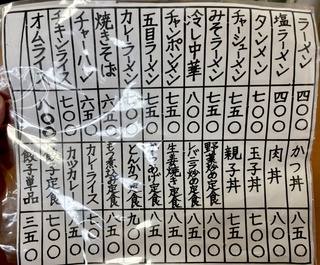 ラーメン 四〇〇
塩ラーメン 四〇〇
タンメン 五〇〇
チャーシューメン 七〇〇
みそラーメン 五五〇
冷し中華 八〇〇
チャンポンメン 七五〇
五目ラーメン 七五〇
カレーラーメン 五〇
焼きそば 六五〇
チャーハン 六五〇
チキンライス 七〇〇
オムライス 八〇〇
かつ丼 八五〇
肉丼 八〇〇
玉子丼 七〇〇
親子丼 七五〇
野菜炒め定食
炒め定食 八五〇
生姜焼き定食 八五〇
定食
とんかつ定食 九〇〇
もつ煮込定食
カレーライス 七〇〇
カツカレー
餃子定食 七〇〇
餃子単品 三五〇